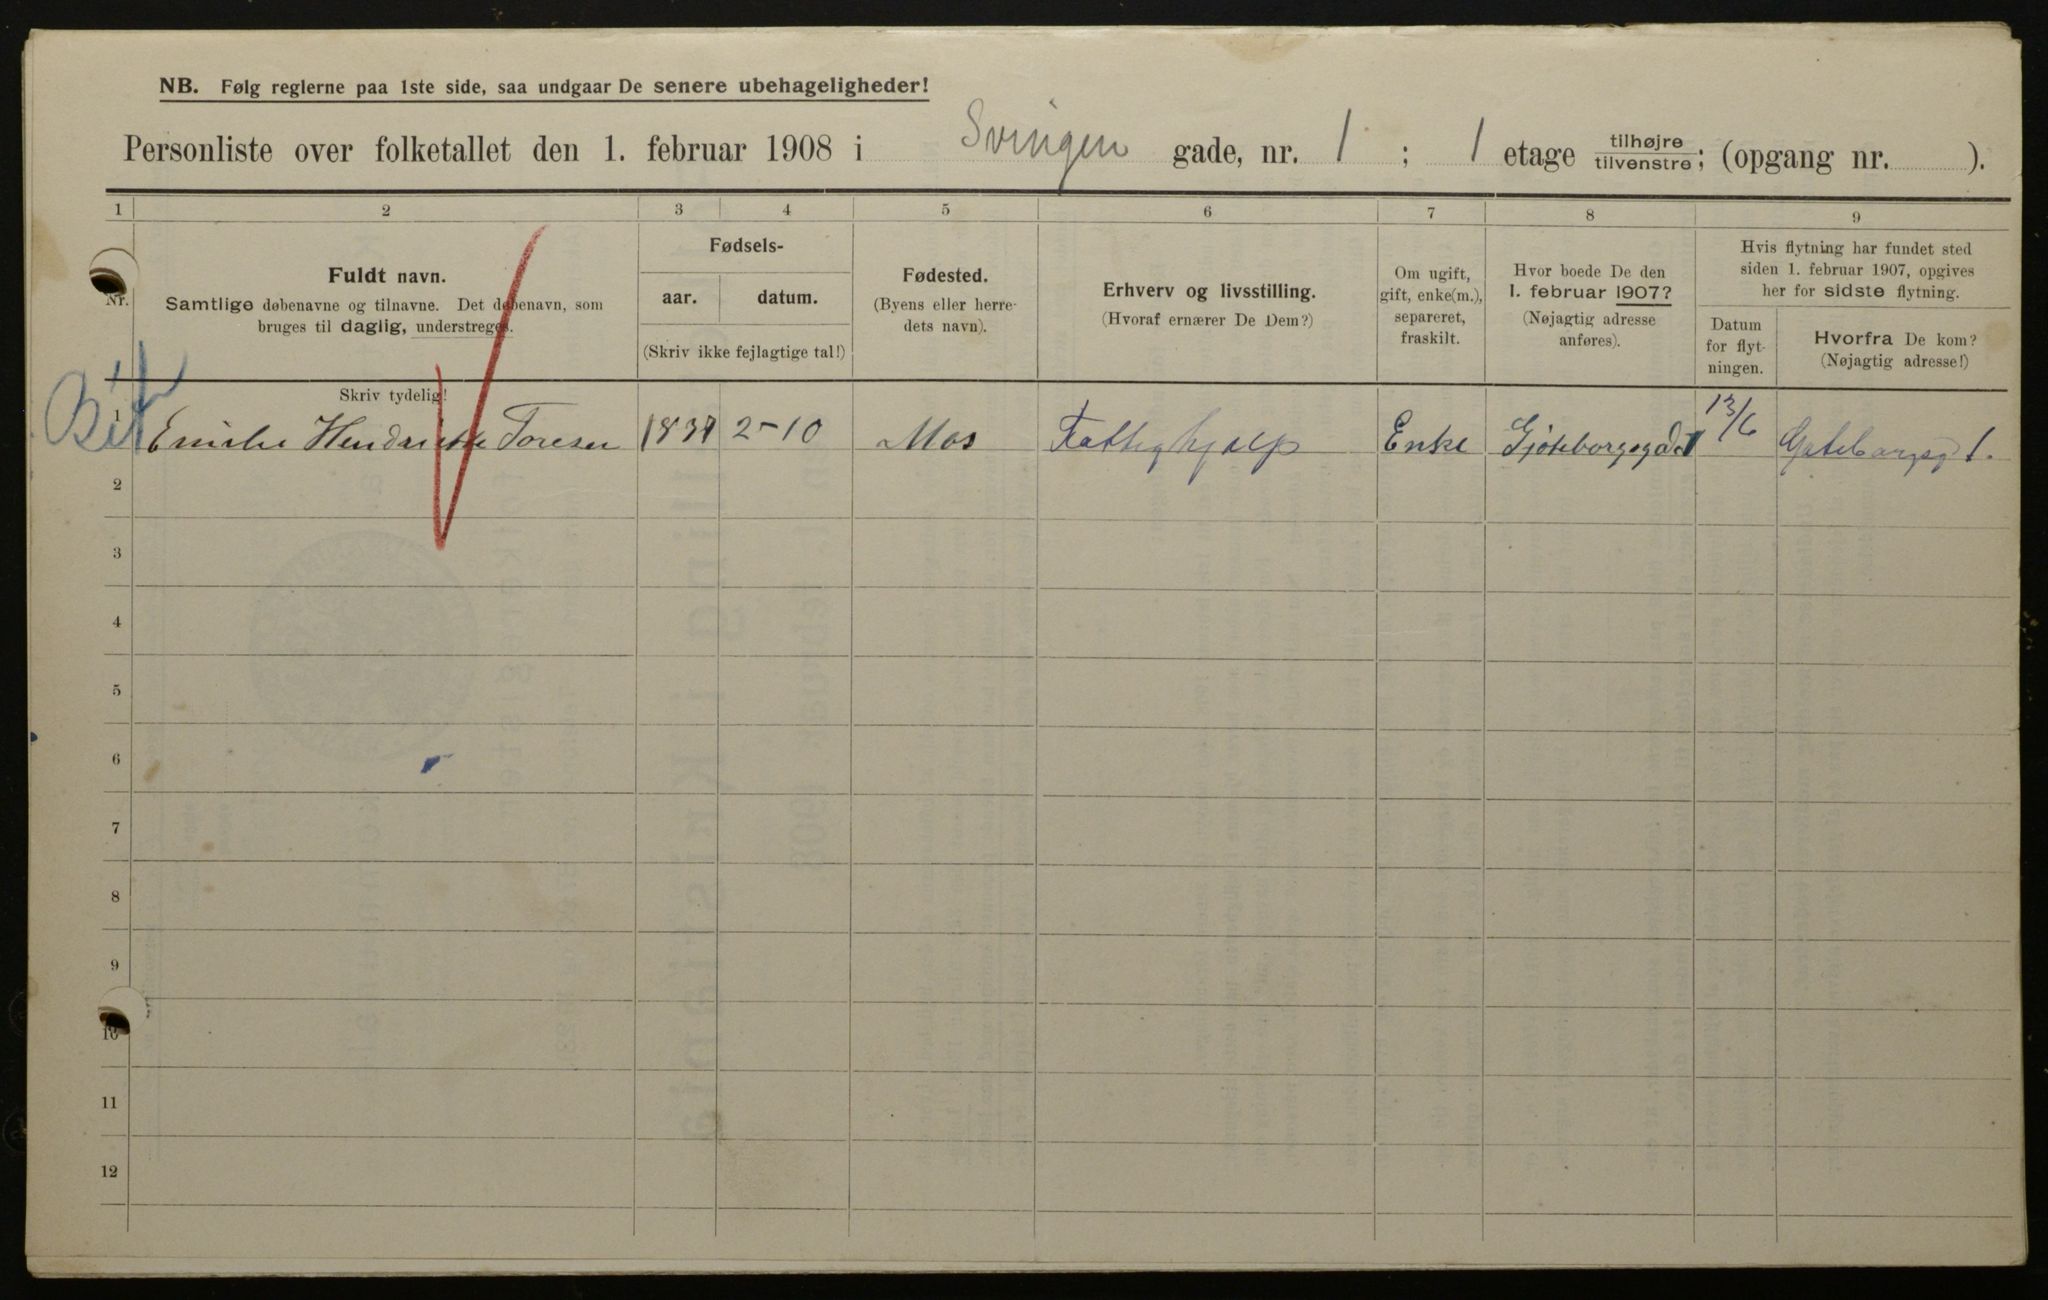 NB. Følg reglerne paa 1ste side, saa undgaar De senere ubehageligheder!
Personliste over folketallet den 1. februar 1908 i Svingen gade, nr. 1 ; 1 etage tilhøjre tilvenstre; (opgang nr. ).
1 2 3 4 5 6 7 8 9
Nr.
Fuldt navn.
Samtlige døbenavne og tilnavne. Det døbenavn, som
bruges til daglig, understreges.
Fødsels-
aar. datum.
(Skriv ikke fejlagtige tal!)
Fødested.
(Byens eller herre-
dets navn).
Erhverv og livsstilling.
(Hvoraf ernærer De Dem?)
Om ugift,
gift, enke(m.),
separeret,
fraskilt.
Hvor boede De den
1. februar 1907?
(Nøjagtig adresse
anføres).
Hvis flytning har fundet sted
siden 1. februar 1907, opgives
her for sidste flytning.
Datum
for flyt-
ningen.
Hvorfra De kom?
(Nøjagtig adresse!)
Skriv tydelig!
1 Emilie Hendriette Toresen 2-10 Mos Fattighjælp Enke Gjøteborgsgad 1 13/6 Gøteborgsg 1.
2
3
4
5
6
7
8
9
10
11
12